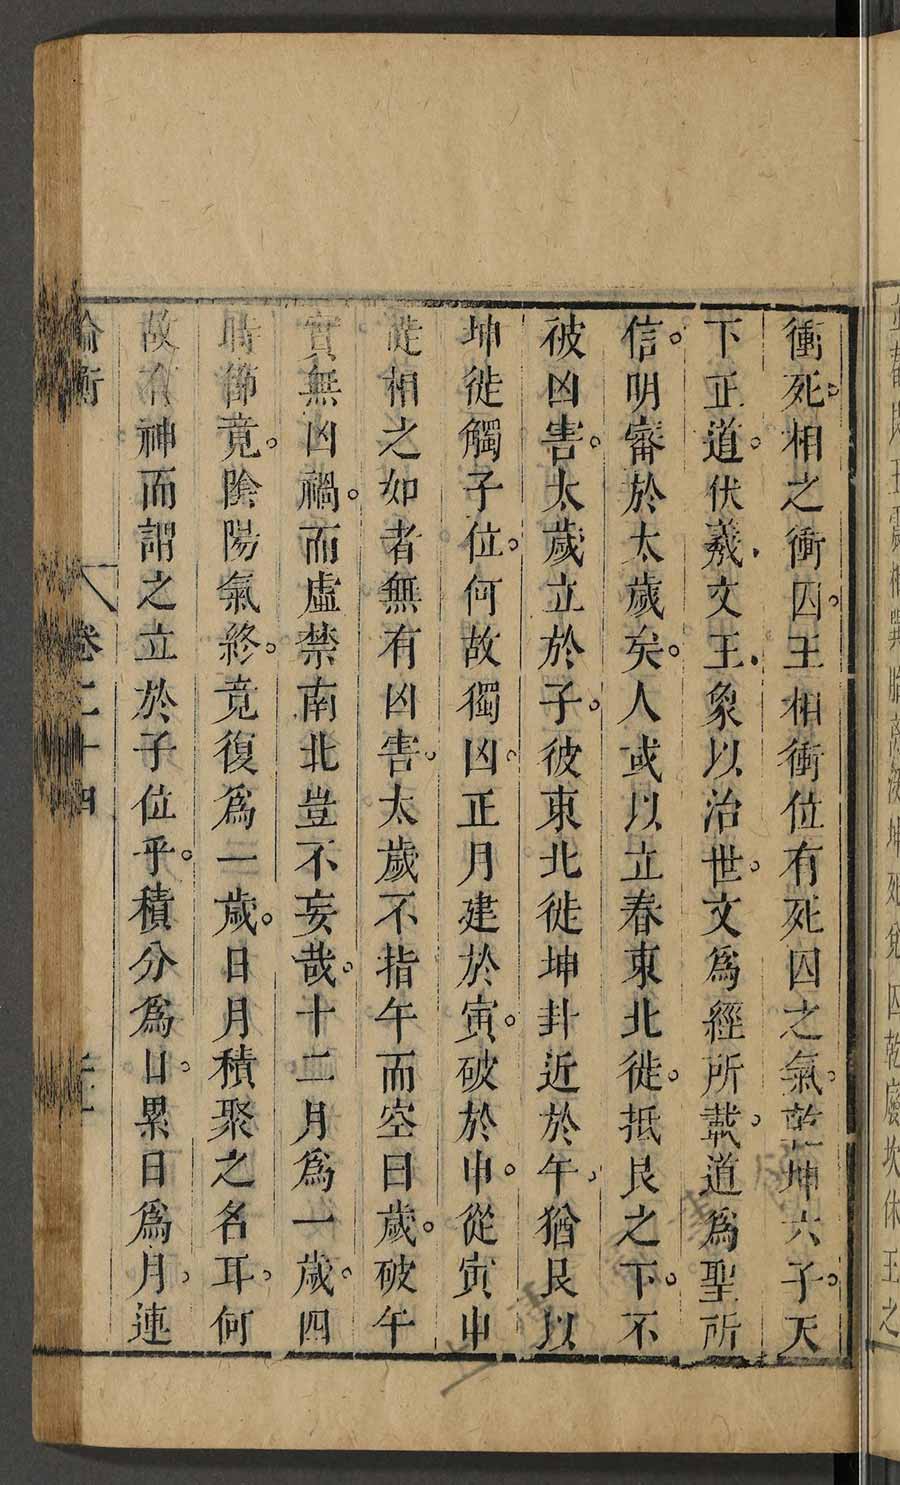 坤死兌囚乾廢坎休王之
衝死。相之衝囚。王相衝位有死囚之氣。乾坤六子。天
下正道。伏羲、文王、象以治世。文爲經所載。道爲聖所
信。明審於太歲矣。人或以立春東北徙。抵艮之下。不
被凶害。太歲立於子。彼東北徙坤卦近於午、猶艮以
坤徙觸子位。何故獨凶。正月建於寅。破於申。從寅申
徙相之如者無有凶害。太歲不指午而空曰歲。破午
實無凶禍。而虛禁南北豈不妄哉。十二月爲一歲。四
時節竟。陰陽氣終。竟復爲一歲。日月積聚之名耳。何
故有神而謂之立於子位乎。積分爲日。累日爲月、連
論衡 卷二十四